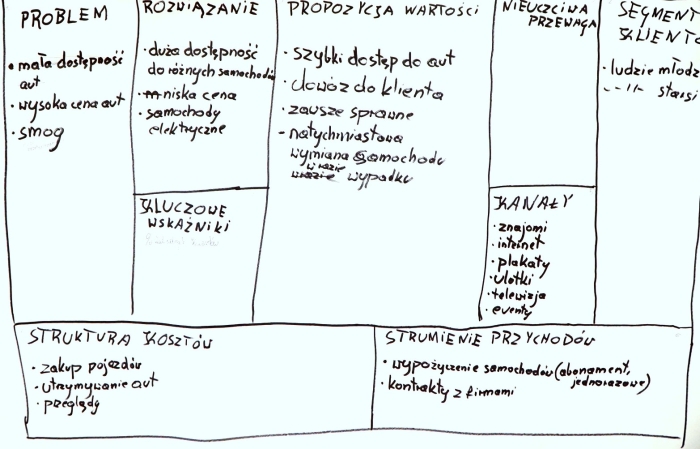 PROBLEM
• mała dostępność
aut
• wysoka cena aut
• smog
ROZWIĄZANIE
• duża dostępność
do różnych samochodów
• niska cena
• samochody
elektryczne
KLUCZOWE
WSKAŹNIKI
PROPOZYCJA WARTOŚCI
• szybki dostęp do aut
• dowóz do klienta
• zawsze sprawne
- natychmiastowa
wymiana samochodu
w razie wypadku
NIEUCZCIWA
PRZEWAGA
KANAŁY
• znajomi
• internet
• plakaty
• ulotki
• telewizja
• eventy
SEGMENT
KLIENTÓ
• ludzie młodz
- - 11 - starsi
STRUKTURA KOSZTÓW
• zakup pojazdów
• utrzymywanie aut
• przeglądy
STRUMIENIE PRZYCHODÓW
• wypożyczenie samochodów (abonament,
jednorazowe)
• kontrakty z firmami